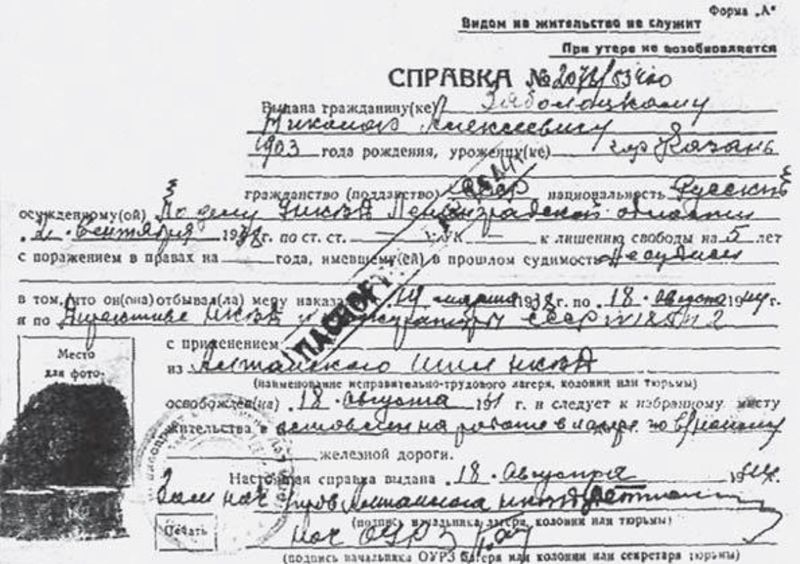 Форма „А"
Видом на жительство не служит
При утере не возобновляется
СПРАВКА № 2078/53400
Выдана гражданину(ке) Заболоцкому
Николаю Алексеевичу
1903 года рождения, уроженцу(ке) гор Казань
гражданство (подданство) СССР национальность Русский
осужденному(ой) По делу НКВД Ленинградской области
2 сентября 1938 г. по ст. ст. — УК — к лишению свободы на 5 лет
с поражением в правах на — года, имевшему(ей) в прошлом судимость Несудим
в том, что он(она) отбывал(ла) меру наказа 19 марта 1938 г. по 18 августа 1944 г.
и по Директиве НКВД и Прокуратуры СССР № 185/п 2
ПАСПОРТ
с применением
Место
для фото-
из Алтайского НКВД
(наименование исправительно-трудового лагеря, колонии или тюрьмы)
освобожден(на) 18 августа 194 г. и следует к избранному месту
жительства оставлен на работе в лагере по в/найму
железной дороги.
Настоящая справка выдана 18 Августа 1944 г.
Зам нач Алтайского НКВД
(подпись начальника лагеря, колонии или тюрьмы)
Печать
нач ОУРЗ
(подпись начальника ОУРЗ лагеря или колонии или секретаря тюрьмы)